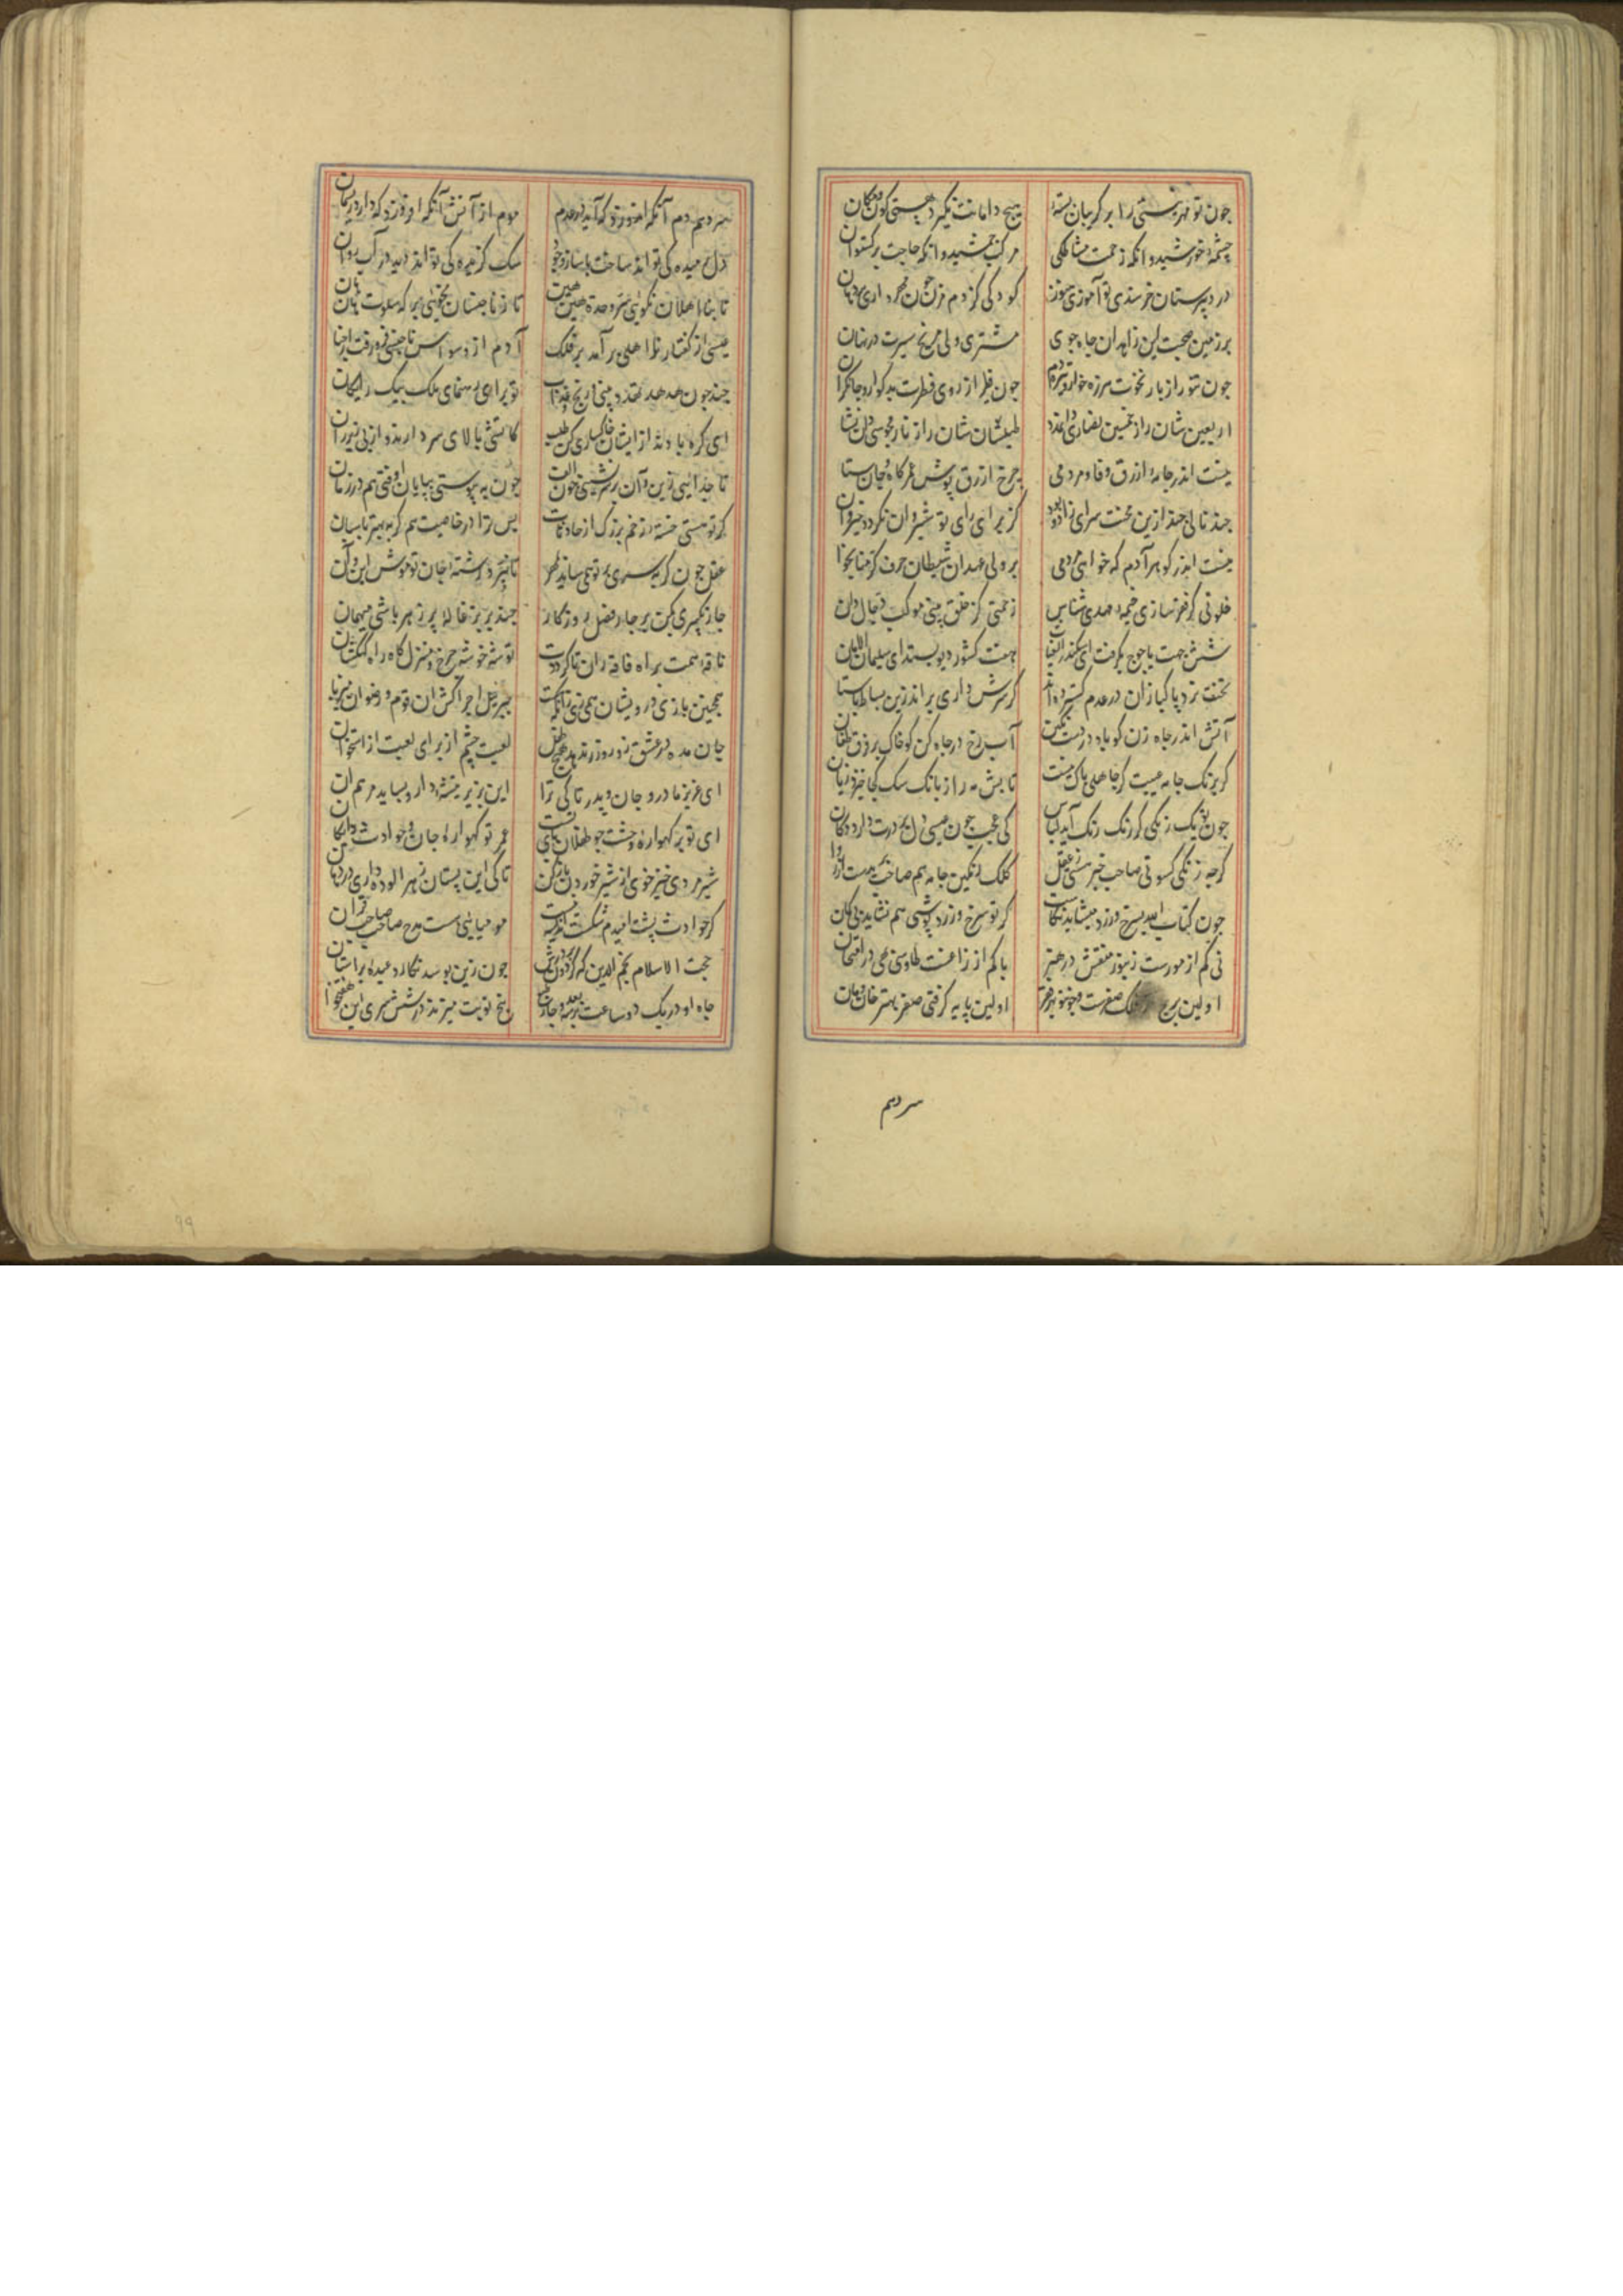 چون تو مهر نیستی را بر گریبان بسته هیچ دامانت نگیرد هستی کون و مکان
چشمه خورشید و انکه زحمت مشاطکی مرکب جمشید و انکه حاجت برکستوان
در دبیرستان خرسندی نو آموزی هنوز کودکی کن دم مزن چون مهر داری بر زبان
بر زمین صحبت این زاهدان جاه جوی مشتری ولی مریخ سیرت در نهان
چون تنور از نار نخوت هرزه خوار و تیره دم چون فطیر از روی فطرت بد کوار و جانکزا
اربعین شان را ز خمسین نصاری طیلسان شان را ز زنار مجوسی دان نشا
نیست اندر جامه ازرق وفا و مردمی چرخ ازرق پوش عمر کاه جان ستا
چند نالی چند ازین محنت سرای کز برای رای تو شروان نکردد خیروان
نیست اندر کوهر آدم که خواهی مردمی بر ولی عهدان شیطان حرف کرمنا مخوا
خلوتی کز فقر سازی خیمه مهدی شناس زحمتی کز خلق بینی موکب دجال دان
شش جهت یاجوج بگرفت ای سکندر هفت کشور دیو بستد ای سلیمان الامان
تختت نرد پاکبازان در عدم گسترده اند گر سرش داری براندر زین بساط باستا
آتش اندر جاه زن کو باد در دست آب رخ در چاه کن کو خاک بر فرق طغان
کر برنک جامه عیبت کرد جاهل باک نیست تابش مه را ز بانک سک کجا خیزد زیان
چون به یک رنکی کز رنک رنک آید لباس کی عجب چون عیسی دل بر درت دارد دکان
گرچه زنکی کسوتی صاحب خبر هستی ز عقل کلک رنگین جامه هم صاحب
چون کتاب الله بسرخ و زرد میشاید نکاشت کر تو سرخ و زرد پوشی هم نشاید بی کان
نی کم از مورست زنبور منقش در هنر یا کم از زاغست طاوس بهی در امتحان
اولین برج فلک صفرست اولین پایه کرفتی صفر بهتر خان و مان
سردهم
سردهم دم آنکه موم از آتش آنکه
دل رمیده کی تواند ساخت با ساز وجود سک کزیده کی تواند دید در آب روان
تا بنا اهلان نکویی سر وحدت هین هین تا ز ناجنسان نجویی برک سلوت هان هان
عیسی از گفتار نا اهلی برآمد بر فلک آدم از وسواس ناجنسی فرو رفت از جنا
چند چون هدهد تهدد بینی از رنج عذاب تو برای رهنمای ملک بیک رایکان
ای گره باد نه از ایشان خاکساری کن طلب کاتش بالای سر دارند و آب زیر ران
تا جدا نی زین و آن سر نشینی چون الف چون به پیوستی بپایان اوفتی هم در زمان
کر تو هستی خسته از زخم بزرک از حادثات پس ترا در خاصیت هم گربه بهتر پاسبان
عقل چون کربه سری بر تو همی ساید ز مهر تا نبرد رشته جان تو موش این و آن
جان بکیری جند بر بزغاله پر زهر باشی میهمان
ناقه همت براه فاقه ران تا کردت توشه خوشه چرخ و منزل گاه راه کهکشان
همچنین بازی درویشان همی زی زانکه جبرئیل اجرا کش ان قوم و رضوان میزبان
جان مده در عشق زور و زر که ندهد هیچ طفل لعبت چشم از برای لعبتی از استخوان
ای عزیز مادر و جان پدر تا کی ترا این بزیر تیشه دارد و بیاید مرهم ان
ای تو بر کهواره وحشت چو طفلان پای بست غم تو کهواره جان و حوادث دایکان
شیر مردی خیز خوی از شیر خوردن باز کن تا کی این پستان زهر الوده داری در دهان
کر حوادث پشت امیدم شکست اندیشه نیست مومیایی هست مدح صاحب صاحبقران
حجت الاسلام نجم الدین که کردون بر درش چون زمین بوسد نگارد عبده بر آستان
جاه او در یک دو ساعت پنج نوبت میزند در شش سوی این هفتخوا